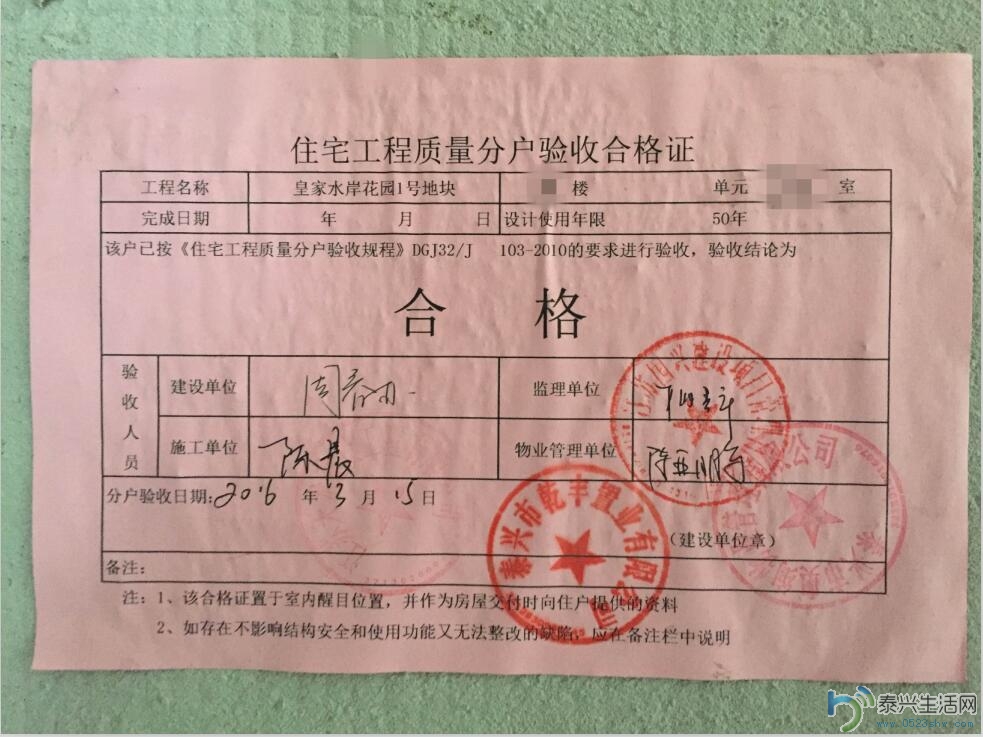 住宅工程质量分户验收合格证
工程名称 皇家水岸花园1号地块 楼 单元 室
完成日期 年 月 日 设计使用年限 50年
该户已按《住宅工程质量分户验收规程》DGJ32/J 103-2010的要求进行验收，验收结论为
合 格
验收人员
建设单位 监理单位
施工单位 陈晨 物业管理单位
分户验收日期: 2016 年 3 月 15 日
(建设单位章)
备注:
注: 1、该合格证置于室内醒目位置，并作为房屋交付时向住户提供的资料
2、如存在不影响结构安全和使用功能又无法整改的缺陷，应在备注栏中说明
泰兴市乾丰置业有限公司
泰兴生活网
www.0523shw.com